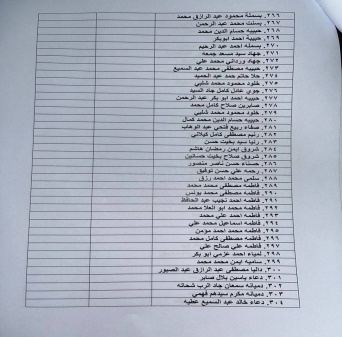 ٢٦٦. بسملة محمود عبد الرازق محمد
٢٦٧. بسنت محمد عبد الرحمن
٢٦٨. حبيبه حسام الدين محمد
٢٦٩. حبيبة احمد ابوبكر
٢٧٠. بسمله احمد عبد الرحيم
٢٧١. جهاد سيد مسعد جمعه
٢٧٢. جهاد ورداني محمد علي
٢٧٣. حبيبه مصطفى محمد عبد السميع
٢٧٤. حلا حاتم حمد عبد الحميد
٢٧٥. خلود محمود محمد شلبي
٢٧٦. جوي عادل كامل جاد السيد
٢٧٧. حبيبه احمد ابو بكر عبد الرحمن
٢٧٨. صابرين صلاح كامل محمد
٢٧٩. خلود محمود محمد شلبي
٢٨٠. حبيبه حسام الدين محمد كمال
٢٨١. صفاء ربيع فتحي عبد الوهاب
٢٨٢. رنيم مصطفى كامل كيلاني
٢٨٣. رنيا سيد بخيت حسن
٢٨٤. شروق ايمن رمضان هاشم
٢٨٥. شروق صلاح بخيت حسانين
٢٨٦. حسناء حسن ناصر منصور
٢٨٧. رحمه علي حسن توفيق
٢٨٨. سلمى محمد احمد رزق
٢٨٩. فاطمه مصطفى محمد محمد
٢٩٠. فاطمه مصطفى محمد يونس
٢٩١. فاطمه احمد نجيب عبد الحافظ
٢٩٢. فاطمه محمد ابو العلا محمد
٢٩٣. فاطمه احمد علي محمد
٢٩٤. فاطمه اسماعيل محمد علي
٢٩٥. فاطمه محمد احمد مؤمن
٢٩٦. فاطمه مصطفى كامل محمد
٢٩٧. فاطمه علي صالح علي
٢٩٨. لمياء احمد عزمي ابو بكر
٢٩٩. ساميه ايمن محمد محمد
٣٠٠. داليا مصطفى عبد الرازق عبد الصبور
٣٠١. دعاء ياسين بلال صابر
٣٠٢. دميانه سمعان جاد الرب شحاته
٣٠٣. دميانه مكرم سيدهم فهمي
٣٠٤. دعاء خالد عبد السميع عطيه